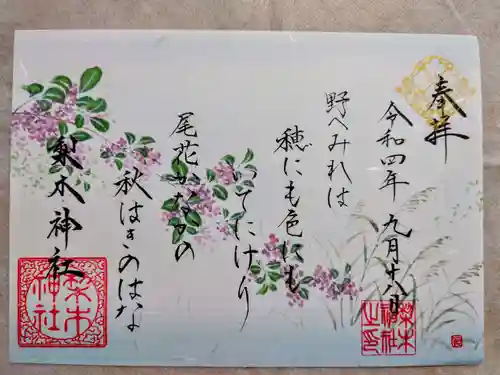 奉拝
令和四年九月十八日
野へみれは
穂にも色にも
いてにけり
尾花かなかの
秋はきのはな
梨木神社
梨木
神社
梨木
神社
之印